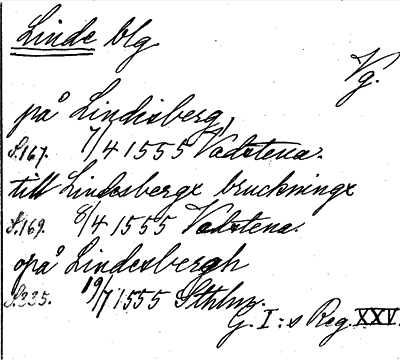 Linde blg
Vg.
på Lindesberg,
S.167. 7/4 1555 Vadstena.
till Lindesbergx bruckningx
S.169. 8/4 1555 Vadstena.
opå Lindesbergh
S.335. 19/7 1555 Sthlm.
G. I:s Reg. XXV